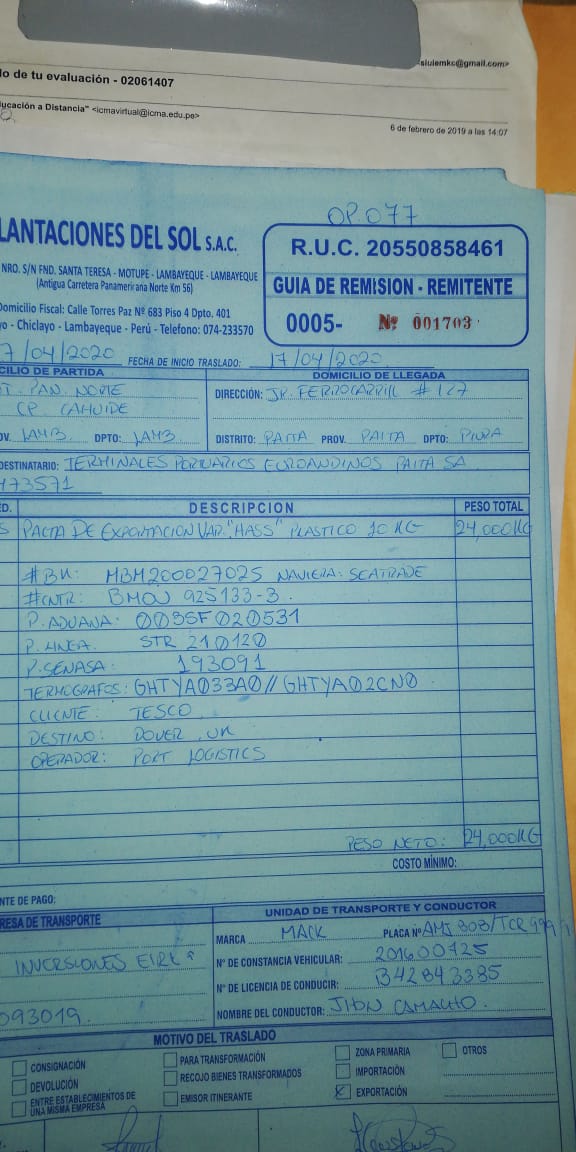 siulemkc@gmail.com>
lo de tu evaluación - 02061407
ucación a Distancia" <icmavirtual@icma.edu.pe>
6 de febrero de 2019 a las 14:07
OP.077
LANTACIONES DEL SOL S.A.C.
NRO. S/N FND. SANTA TERESA - MOTUPE - LAMBAYEQUE - LAMBAYEQUE
(Antigua Carretera Panamericana Norte Km 56)
Domicilio Fiscal: Calle Torres Paz Nº 683 Piso 4 Dpto. 401
yo - Chiclayo - Lambayeque - Perú - Telefono: 074-233570
R.U.C. 20550858461
GUIA DE REMISION - REMITENTE
0005- Nº 001703
7/04/2020 FECHA DE INICIO TRASLADO: 17/04/2020
CILIO DE PARTIDA
DOMICILIO DE LLEGADA
T. PAN. NORTE
CP. CAHUIDE
DIRECCIÓN: JR. FERROCARRIL # 127
OV. LAMB DPTO: LAMB
DISTRITO: PAITA PROV. PAITA DPTO: PIURA
DESTINATARIO: TERMINALES PORTUARIOS EUROANDINOS PAITA SA
473571
D. DESCRIPCION PESO TOTAL
S PALTA DE EXPORTACION VAR. "HASS" PLASTICO 10 KG 24,000KG
#BK: MBM200027025 NAVIERA: SEATRADE
#CNTR: BMOU 925133-3
P. ADUANA: 003SF020531
P. LINEA. STR 210120
P. SENASA: 193091
TERMOGRAFOS: GHTYA033A0 // GHTYA02CN0
CLIENTE: TESCO
DESTINO: DOVER, UK
OPERADOR: PORT LOGISTICS
PESO NETO: 24,000KG
COSTO MÍNIMO:
NTE DE PAGO:
RESA DE TRANSPORTE
UNIDAD DE TRANSPORTE Y CONDUCTOR
MARCA MACK PLACA Nº
INVERSIONES EIRL
Nº DE CONSTANCIA VEHICULAR: 201600725
Nº DE LICENCIA DE CONDUCIR: B42843385
093019.
NOMBRE DEL CONDUCTOR: JHON CAMACHO.
MOTIVO DEL TRASLADO
CONSIGNACIÓN
PARA TRANSFORMACIÓN
ZONA PRIMARIA
OTROS
DEVOLUCIÓN
RECOJO BIENES TRANSFORMADOS
IMPORTACIÓN
ENTRE ESTABLECIMIENTOS DE UNA MISMA EMPRESA
EMISOR ITINERANTE
X EXPORTACIÓN